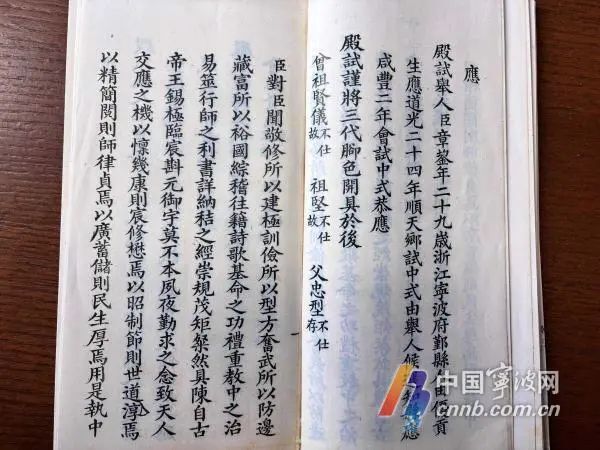 應
殿試舉人臣章鋆年二十九歲浙江寧波府鄞縣人由優貢
生應道光二十四年順天鄉試中式由舉人候知應
咸豐二年會試中式恭應
殿試謹將三代脚色開具於後
曾祖賢儀不仕故 祖堅不仕故 父忠型不仕存
臣對臣聞敬修所以建極訓儉所以型方奮武所以防邊
藏富所以裕國綜稽往籍詩歌基命之功禮重教中之治
易筮行師之利書詳納秸之經崇規茂矩粲然具陳自古
帝王錫極臨宸斟元御宇莫不本夙夜勤求之念致天人
交應之機以懍幾康則宸修懋焉以昭制節則世道淳焉
以精簡閱則師律貞焉以廣蓄儲則民生厚焉用是執中
中国宁波网
cnnb.com.cn